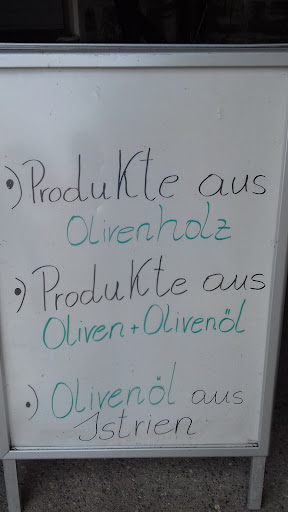 •) Produkte aus
Olivenholz
•) Produkte aus
Oliven + Olivenöl
•) Olivenöl aus
Istrien